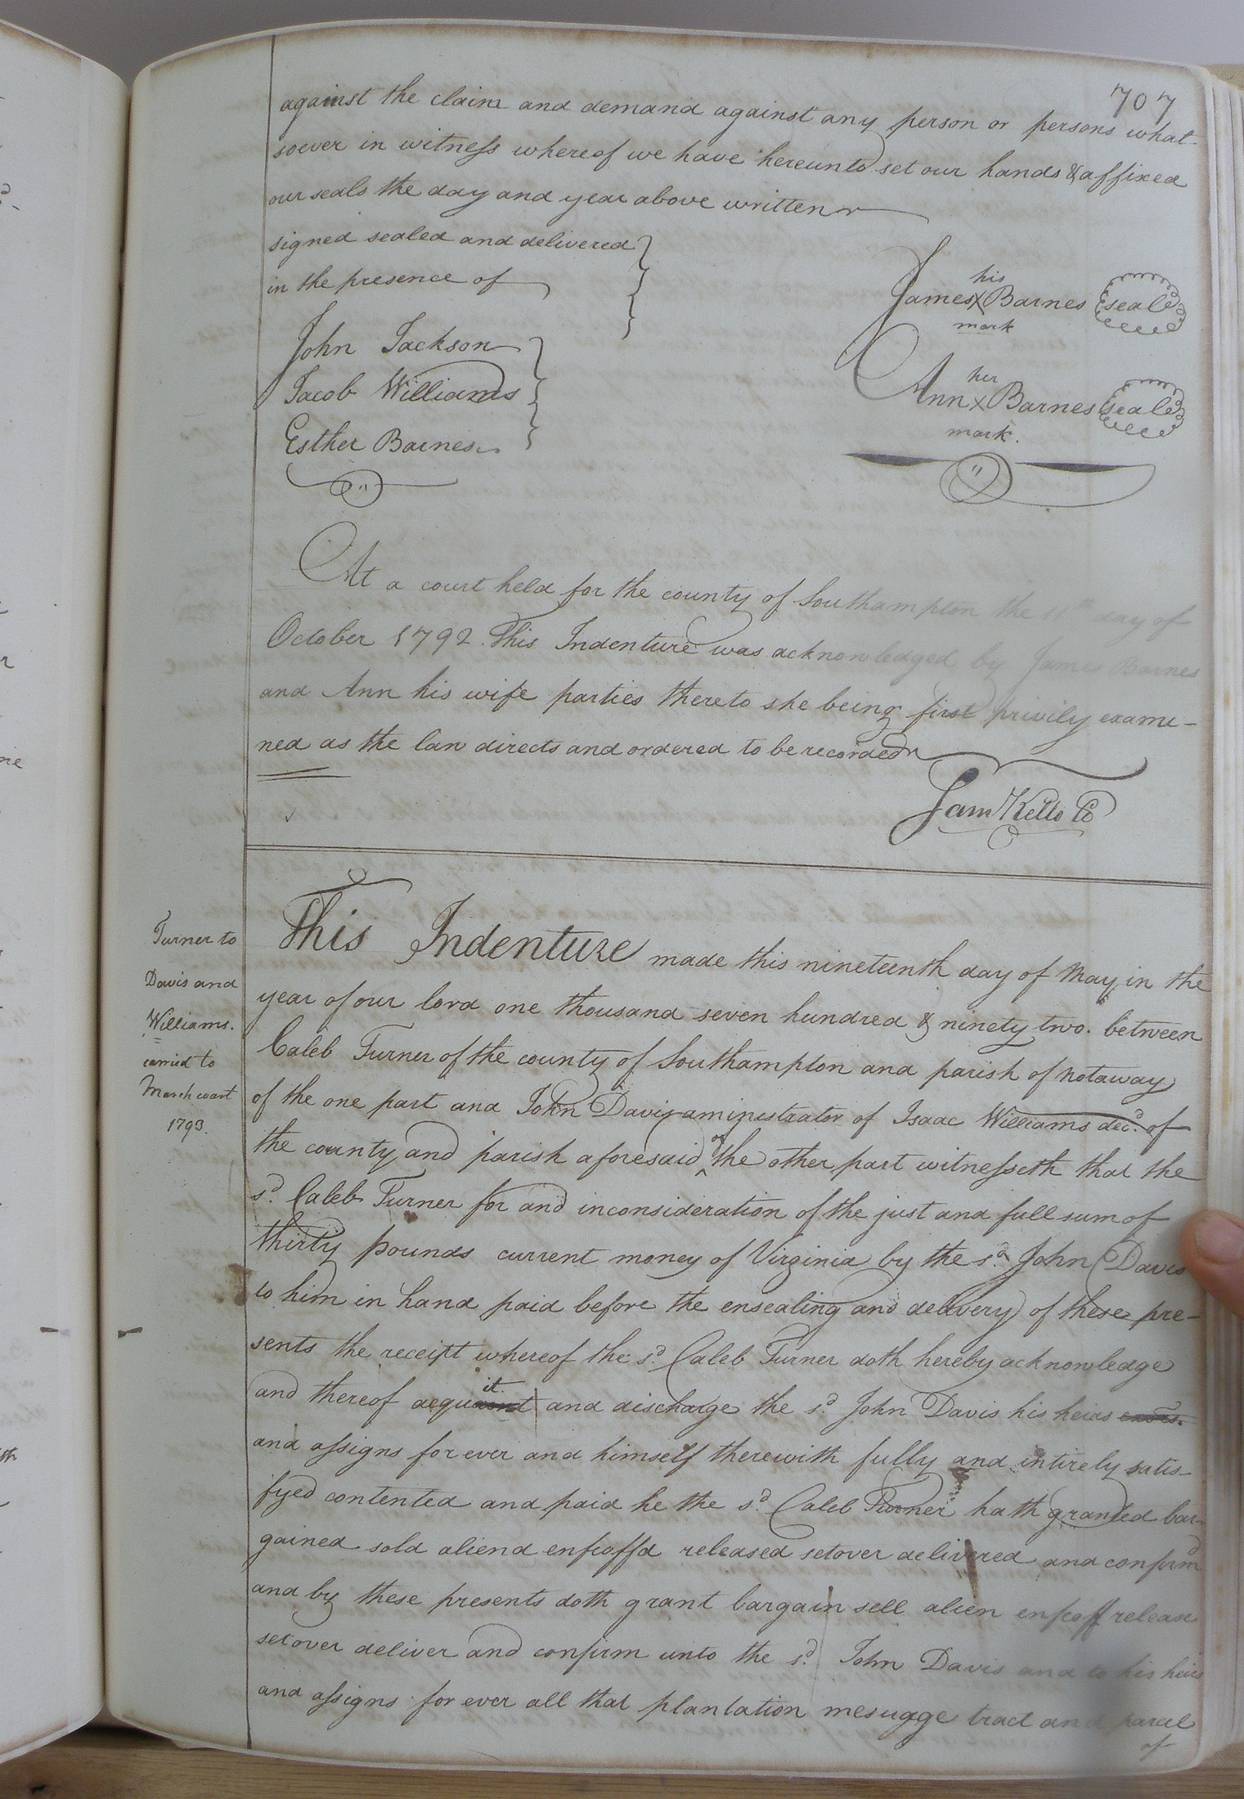 707
against the claim and demand against any person or persons what-
soever in witness whereof we have hereunto set our hands & affixed
our seals the day and year above written
signed sealed and delivered
in the presence of
his
James X Barnes seal
mark
John Jackson
Jacob Williams
her
Ann X Barnes seal
mark.
Esther Barnes
At a court held for the county of Southampton the 11th day of
October 1792. This Indenture was acknowledged by James Barnes
and Ann his wife parties thereto she being first privily exami-
ned as the law directs and ordered to be recorded
Sam Kello CC
Turner to
Davis and
Williams.
carried to
March court
1793.
This Indenture made this nineteenth day of May in the
year of our lord one thousand seven hundred & ninety two. between
Caleb Turner of the county of Southampton and parish of Notaway
of the one part and John Davis aministrator of Isaac Williams decd. of
the county and parish aforesaid of the other part witnesseth that the
sd. Caleb Turner for and inconsideration of the just and full sum of
thirty pounds current money of Virginia by the sd. John Davis
to him in hand paid before the ensealing and delivery of these pre-
sents the receipt whereof the sd. Caleb Turner doth hereby acknowledge
and thereof acquit and discharge the sd. John Davis his heirs
and assigns for ever and himself therewith fully and intirely satis-
fyed contented and paid he the sd. Caleb Turner hath granted bar-
gained sold aliend enfeoffd released setover delivered and confirmd
and by these presents doth grant bargain sell alien enfeoff release
setover deliver and confirm unto the sd. John Davis and to his heirs
and assigns for ever all that plantation mesugge tract and parcel
of